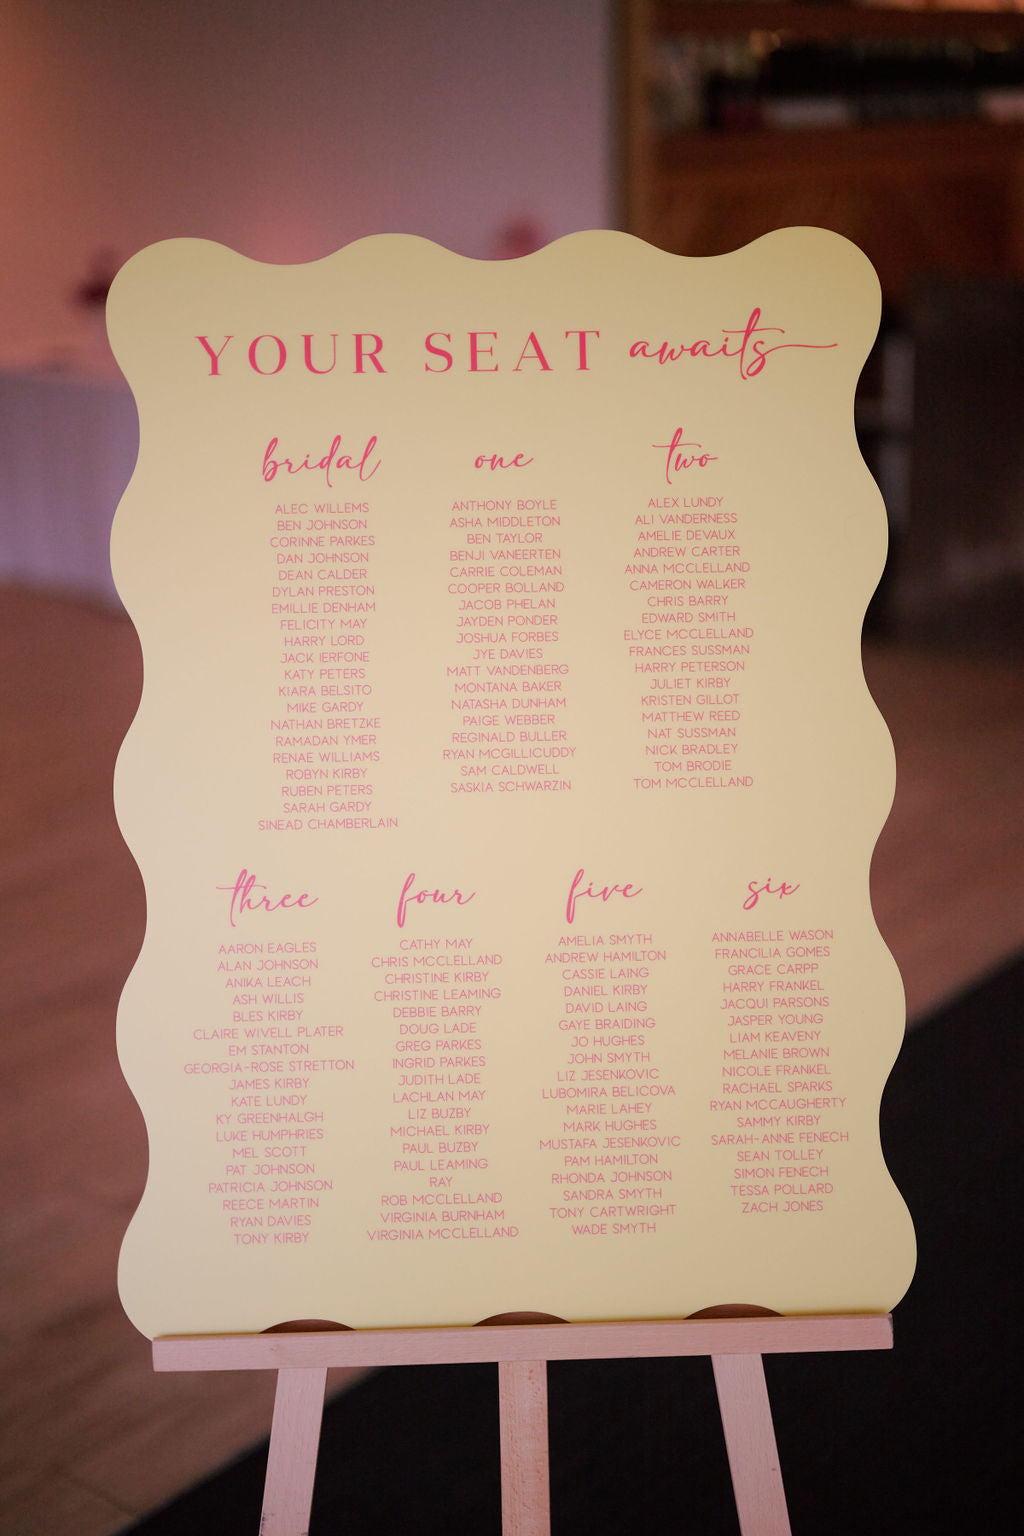 YOUR SEAT awaits
bridal
ALEC WILLEMS
BEN JOHNSON
CORINNE PARKES
DAN JOHNSON
DEAN CALDER
DYLAN PRESTON
EMILLIE DENHAM
FELICITY MAY
HARRY LORD
JACK IERFONE
KATY PETERS
KIARA BELSITO
MIKE GARDY
NATHAN BRETZKE
RAMADAN YMER
RENAE WILLIAMS
ROBYN KIRBY
RUBEN PETERS
SARAH GARDY
SINEAD CHAMBERLAIN
one
ANTHONY BOYLE
ASHA MIDDLETON
BEN TAYLOR
BENJI VANEERTEN
CARRIE COLEMAN
COOPER BOLLAND
JACOB PHELAN
JAYDEN PONDER
JOSHUA FORBES
JYE DAVIES
MATT VANDENBERG
MONTANA BAKER
NATASHA DUNHAM
PAIGE WEBBER
REGINALD BULLER
RYAN MCGILLICUDDY
SAM CALDWELL
SASKIA SCHWARZIN
two
ALEX LUNDY
ALI VANDERNESS
AMELIE DEVAUX
ANDREW CARTER
ANNA MCCLELLAND
CAMERON WALKER
CHRIS BARRY
EDWARD SMITH
ELYCE MCCLELLAND
FRANCES SUSSMAN
HARRY PETERSON
JULIET KIRBY
KRISTEN GILLOT
MATTHEW REED
NAT SUSSMAN
NICK BRADLEY
TOM BRODIE
TOM MCCLELLAND
three
AARON EAGLES
ALAN JOHNSON
ANIKA LEACH
ASH WILLIS
BLES KIRBY
CLAIRE WIVELL PLATER
EM STANTON
GEORGIA-ROSE STRETTON
JAMES KIRBY
KATE LUNDY
KY GREENHALGH
LUKE HUMPHRIES
MEL SCOTT
PAT JOHNSON
PATRICIA JOHNSON
REECE MARTIN
RYAN DAVIES
TONY KIRBY
four
CATHY MAY
CHRIS MCCLELLAND
CHRISTINE KIRBY
CHRISTINE LEAMING
DEBBIE BARRY
DOUG LADE
GREG PARKES
INGRID PARKES
JUDITH LADE
LACHLAN MAY
LIZ BUZBY
MICHAEL KIRBY
PAUL BUZBY
PAUL LEAMING
RAY
ROB MCCLELLAND
VIRGINIA BURNHAM
VIRGINIA MCCLELLAND
five
AMELIA SMYTH
ANDREW HAMILTON
CASSIE LAING
DANIEL KIRBY
DAVID LAING
GAYE BRAIDING
JO HUGHES
JOHN SMYTH
LIZ JESENKOVIC
LUBOMIRA BELICOVA
MARIE LAHEY
MARK HUGHES
MUSTAFA JESENKOVIC
PAM HAMILTON
RHONDA JOHNSON
SANDRA SMYTH
TONY CARTWRIGHT
WADE SMYTH
six
ANNABELLE WASON
FRANCILIA GOMES
GRACE CARPP
HARRY FRANKEL
JACQUI PARSONS
JASPER YOUNG
LIAM KEAVENY
MELANIE BROWN
NICOLE FRANKEL
RACHAEL SPARKS
RYAN MCCAUGHERTY
SAMMY KIRBY
SARAH-ANNE FENECH
SEAN TOLLEY
SIMON FENECH
TESSA POLLARD
ZACH JONES